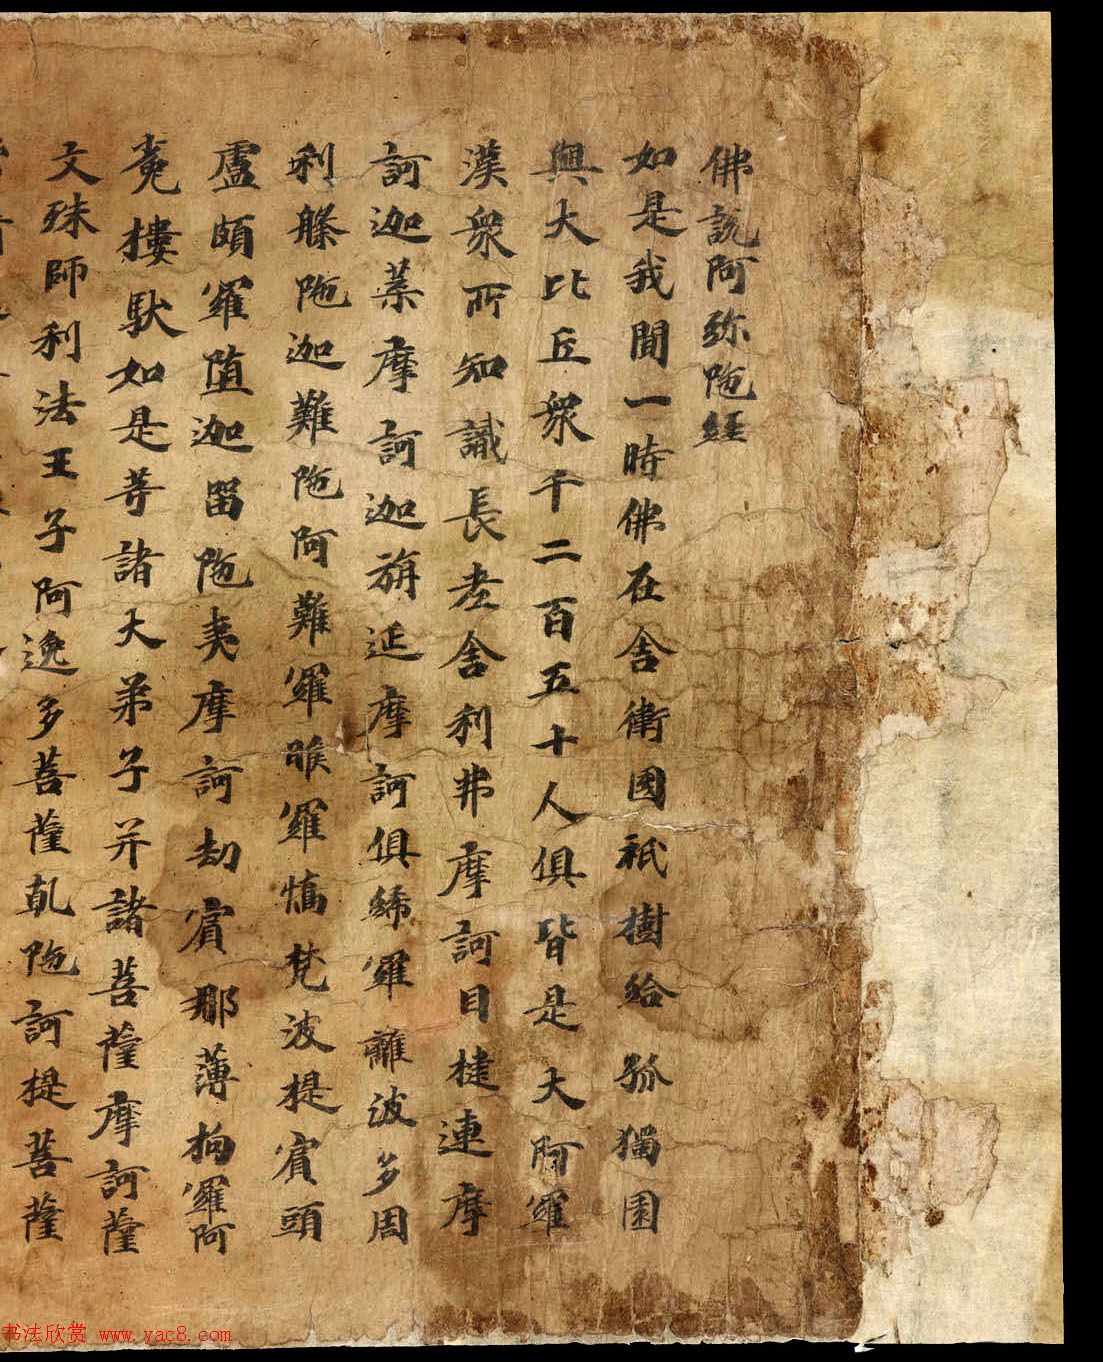 佛說阿弥陁經
如是我聞一時佛在舍衛國祇樹給孤獨園
與大比丘衆千二百五十人俱皆是大阿羅
漢衆所知識長老舍利弗摩訶目揵連摩
訶迦葉摩訶迦旃延摩訶俱絺羅離波多周
利槃陁迦難陁阿難羅睺羅憍梵波提賓頭
盧頗羅堕迦留陁夷摩訶劫賓那薄拘羅阿
㝹樓馱如是等諸大弟子并諸菩薩摩訶薩
文殊師利法王子阿逸多菩薩乹陁訶提菩薩
书法欣赏 www.yac8.com